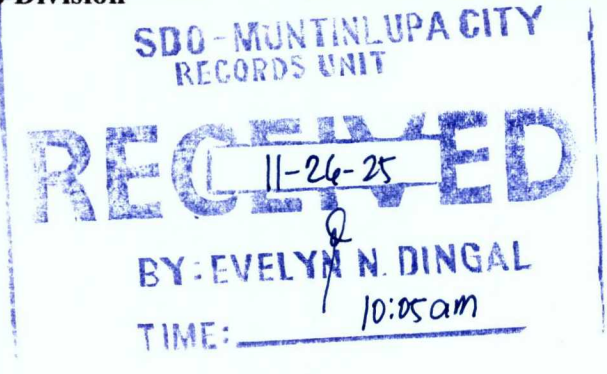 Division
SDO-MUNTINLUPA CITY
RECORDS UNIT
RECEIVED
11-26-25
BY: EVELYN N. DINGAL
10:05am
TIME: